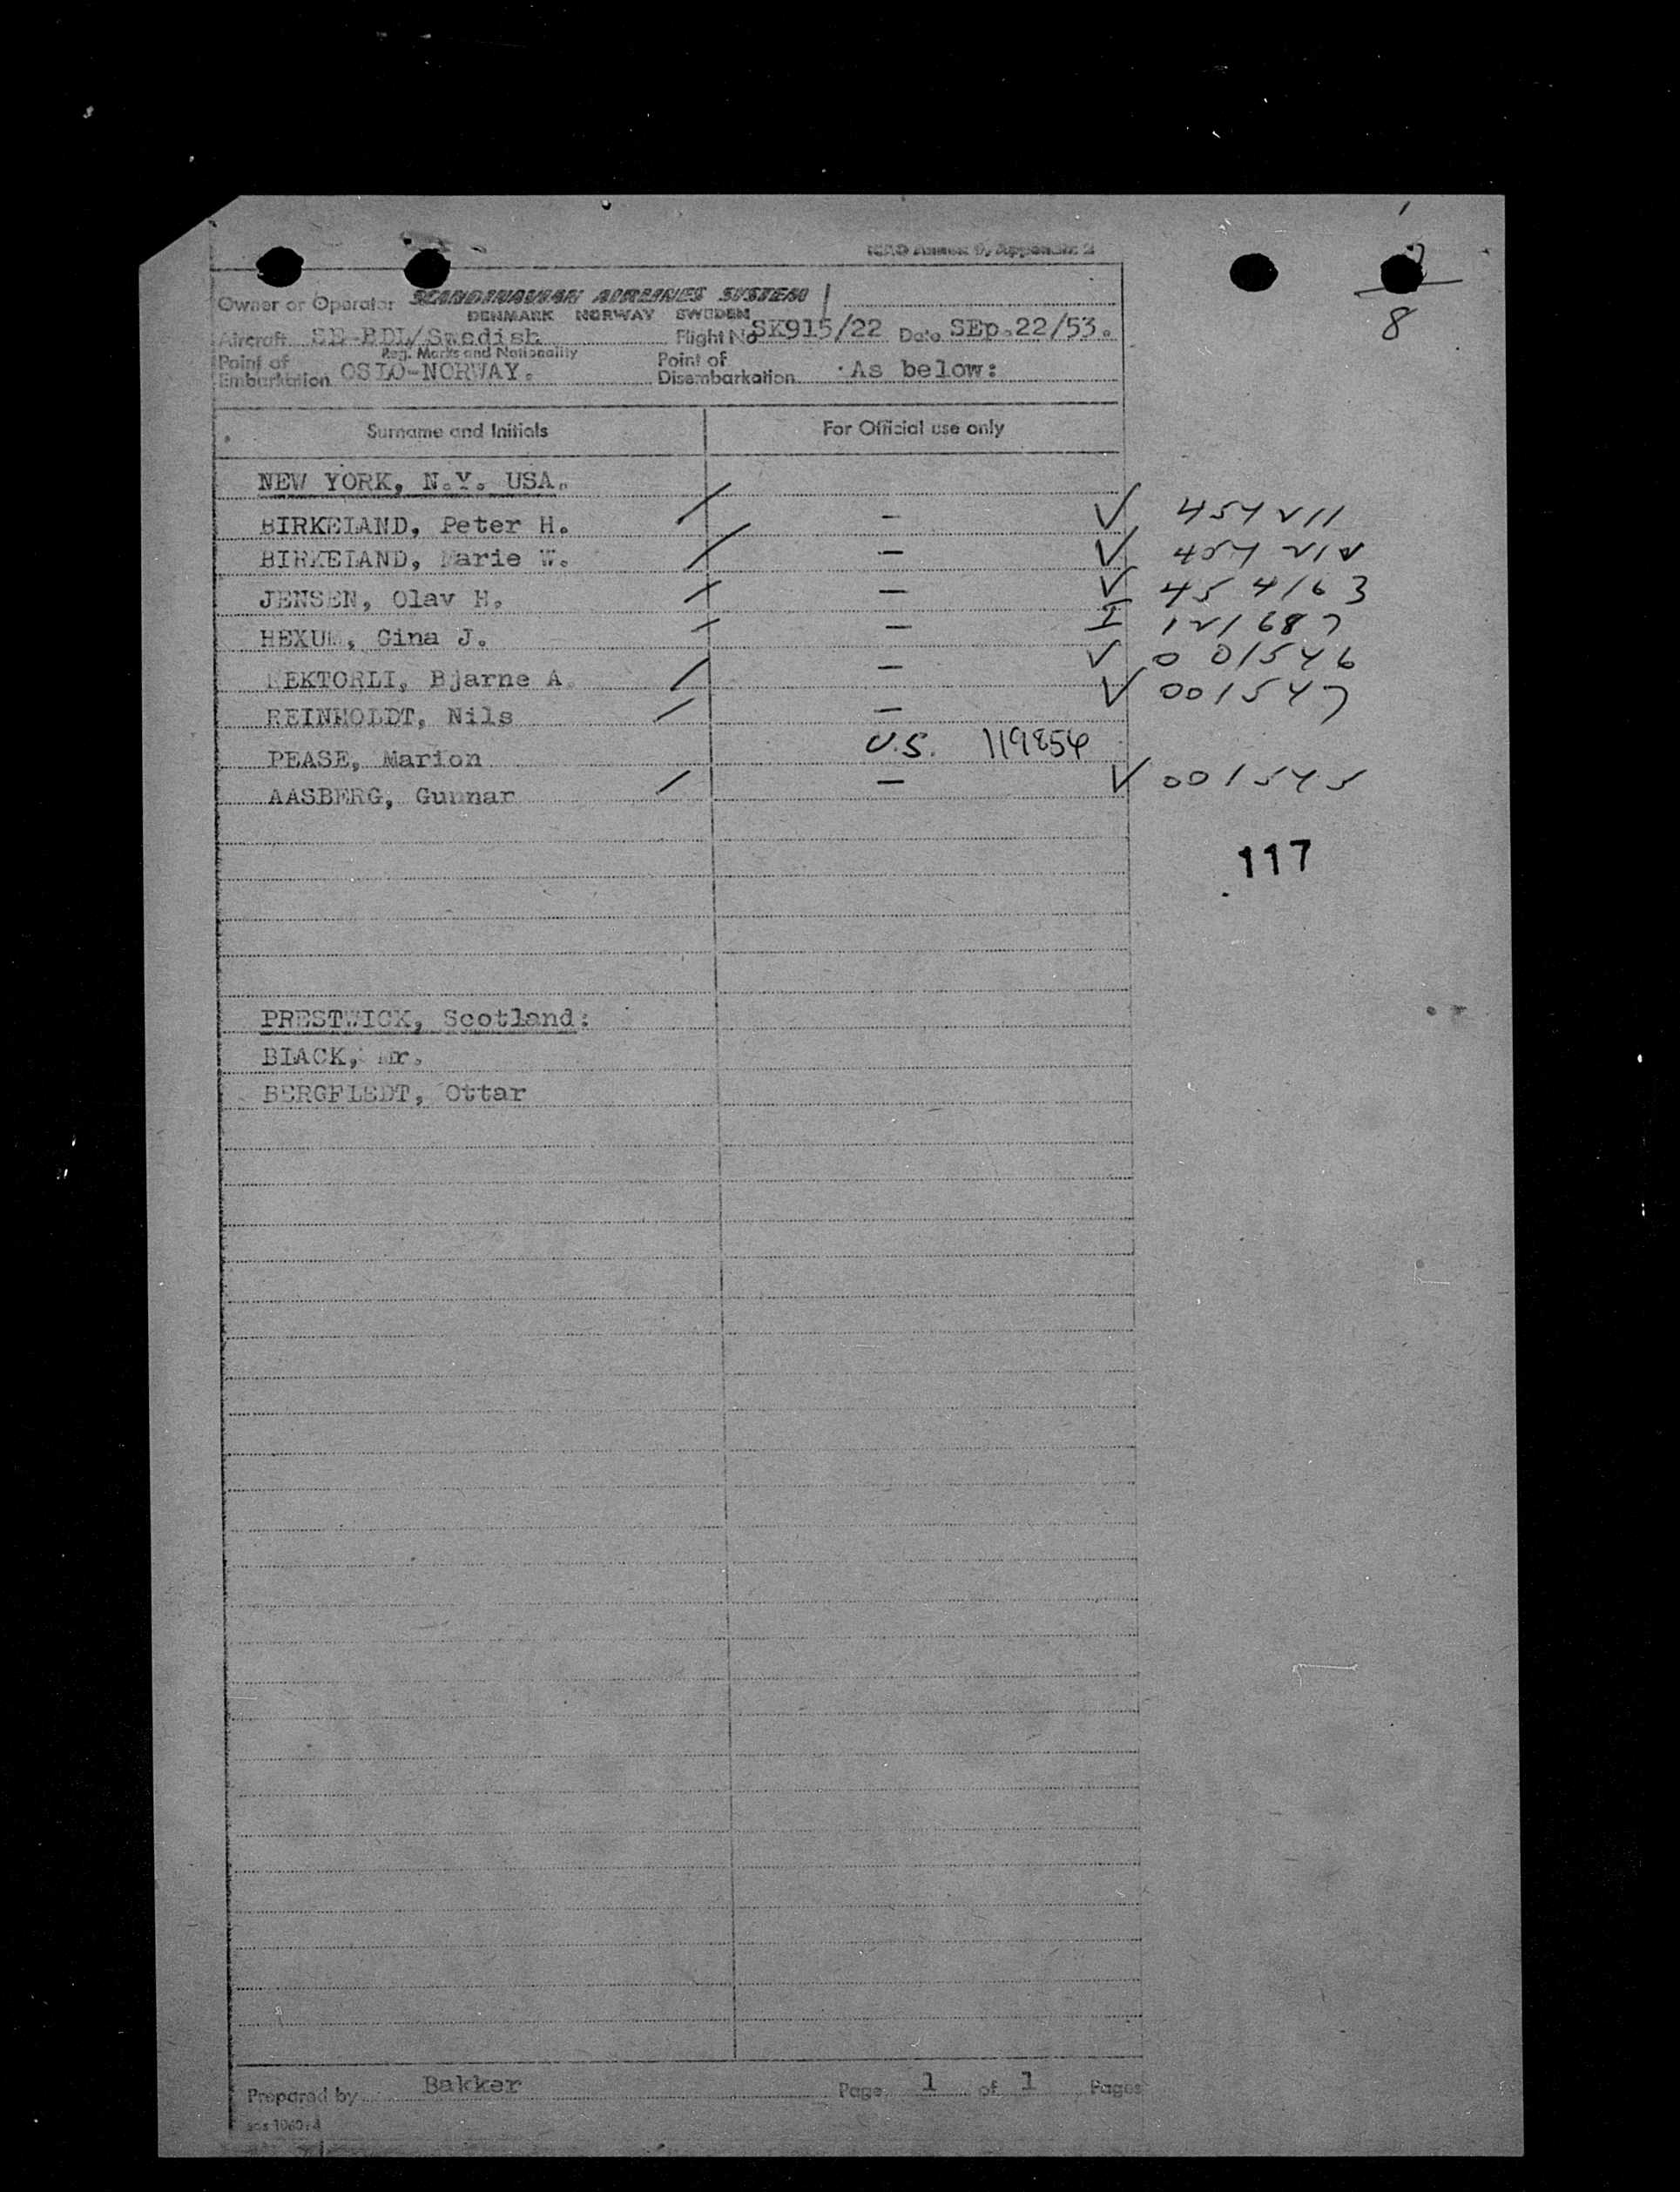 ICAO Annex 9, Appendix 2
Owner or Operator SCANDINAVIAN AIRLINES SYSTEM
DENMARK NORWAY SWEDEN
Aircraft SE-BDL/Swedish Flight No SK915/22 Date SEp.22/53.
Reg. Marks and Nationality
Point of Embarkation OSLO-NORWAY. Point of Disembarkation As below:
8
Surname and Initials For Official use only
NEW YORK, N.Y. USA.
BIRKELAND, Peter H. / — √ 454211
BIRKELAND, Marie W. / — √ 454212
JENSEN, Olav H. / — √ 454163
HEXUM, Gina J. / — I 121687
NEKTORLI, Bjarne A. / — √ 001546
REINHOLDT, Nils / — √ 001547
PEASE, Marion U.S. 119854
AASBERG, Gunnar / — √ 001545
117
PRESTWICK, Scotland:
BLACK, Mr.
BERGFLEDT, Ottar
Prepared by Bakker Page 1 of 1 Pages